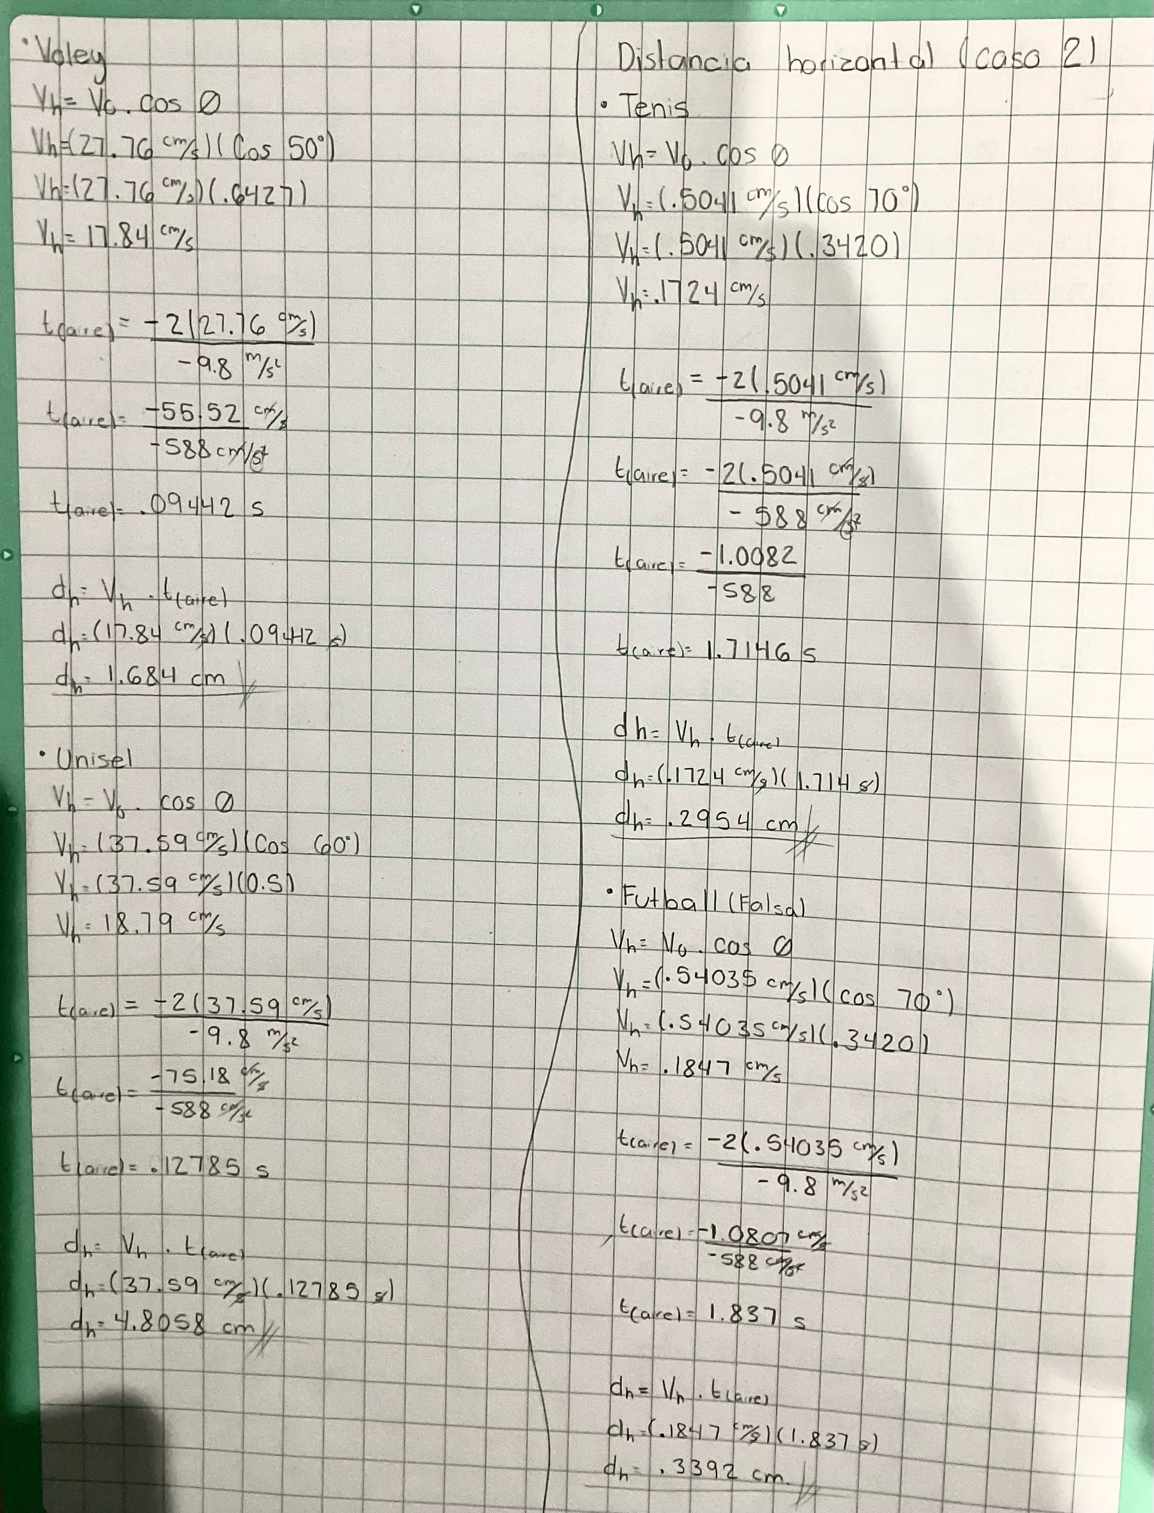 • Voley
Vh= Vo . cos Ø
Vh=(27.76 cm/s)(Cos 50°)
Vh=(27.76 cm/s)(.6427)
Vh= 17.84 cm/s
t(aire) = -2(27.76 cm/s)
-9.8 m/s²
t(aire)= -55.52 cm/s
-588 cm/s²
t(aire)= .09442 s
dh= Vh . t(aire)
dh=(17.84 cm/s)(.09442 s)
dh= 1.684 cm
• Unisel
Vh= Vo . cos Ø
Vh=(37.59 cm/s)(Cos 60°)
Vh=(37.59 cm/s)(0.5)
Vh= 18.79 cm/s
t(aire) = -2(37.59 cm/s)
-9.8 m/s²
t(aire)= -75.18 cm/s
-588 cm/s²
t(aire)= .12785 s
dh= Vh . t(aire)
dh=(37.59 cm/s)(.12785 s)
dh= 4.8058 cm
Distancia horizontal (caso 2)
• Tenis
Vh= Vo . cos Ø
Vh=(.5041 cm/s)(cos 70°)
Vh=(.5041 cm/s)(.3420)
Vh=.1724 cm/s
t(aire) = -2(.5041 cm/s)
-9.8 m/s²
t(aire)= -2(.5041 cm/s)
-588 cm/s²
t(aire)= -1.0082
-588
t(aire)= 1.7146 s
dh= Vh . t(aire)
dh=(.1724 cm/s)(1.714 s)
dh= .2954 cm
• Futball (Falsa)
Vh= Vo . cos Ø
Vh=(.54035 cm/s)(cos 70°)
Vh=(.54035 cm/s)(.3420)
Vh= .1847 cm/s
t(aire) = -2(.54035 cm/s)
-9.8 m/s²
t(aire)= -1.0807 cm/s
-588 cm/s²
t(aire)= 1.837 s
dh= Vh . t(aire)
dh=(.1847 cm/s)(1.837 s)
dh= .3392 cm